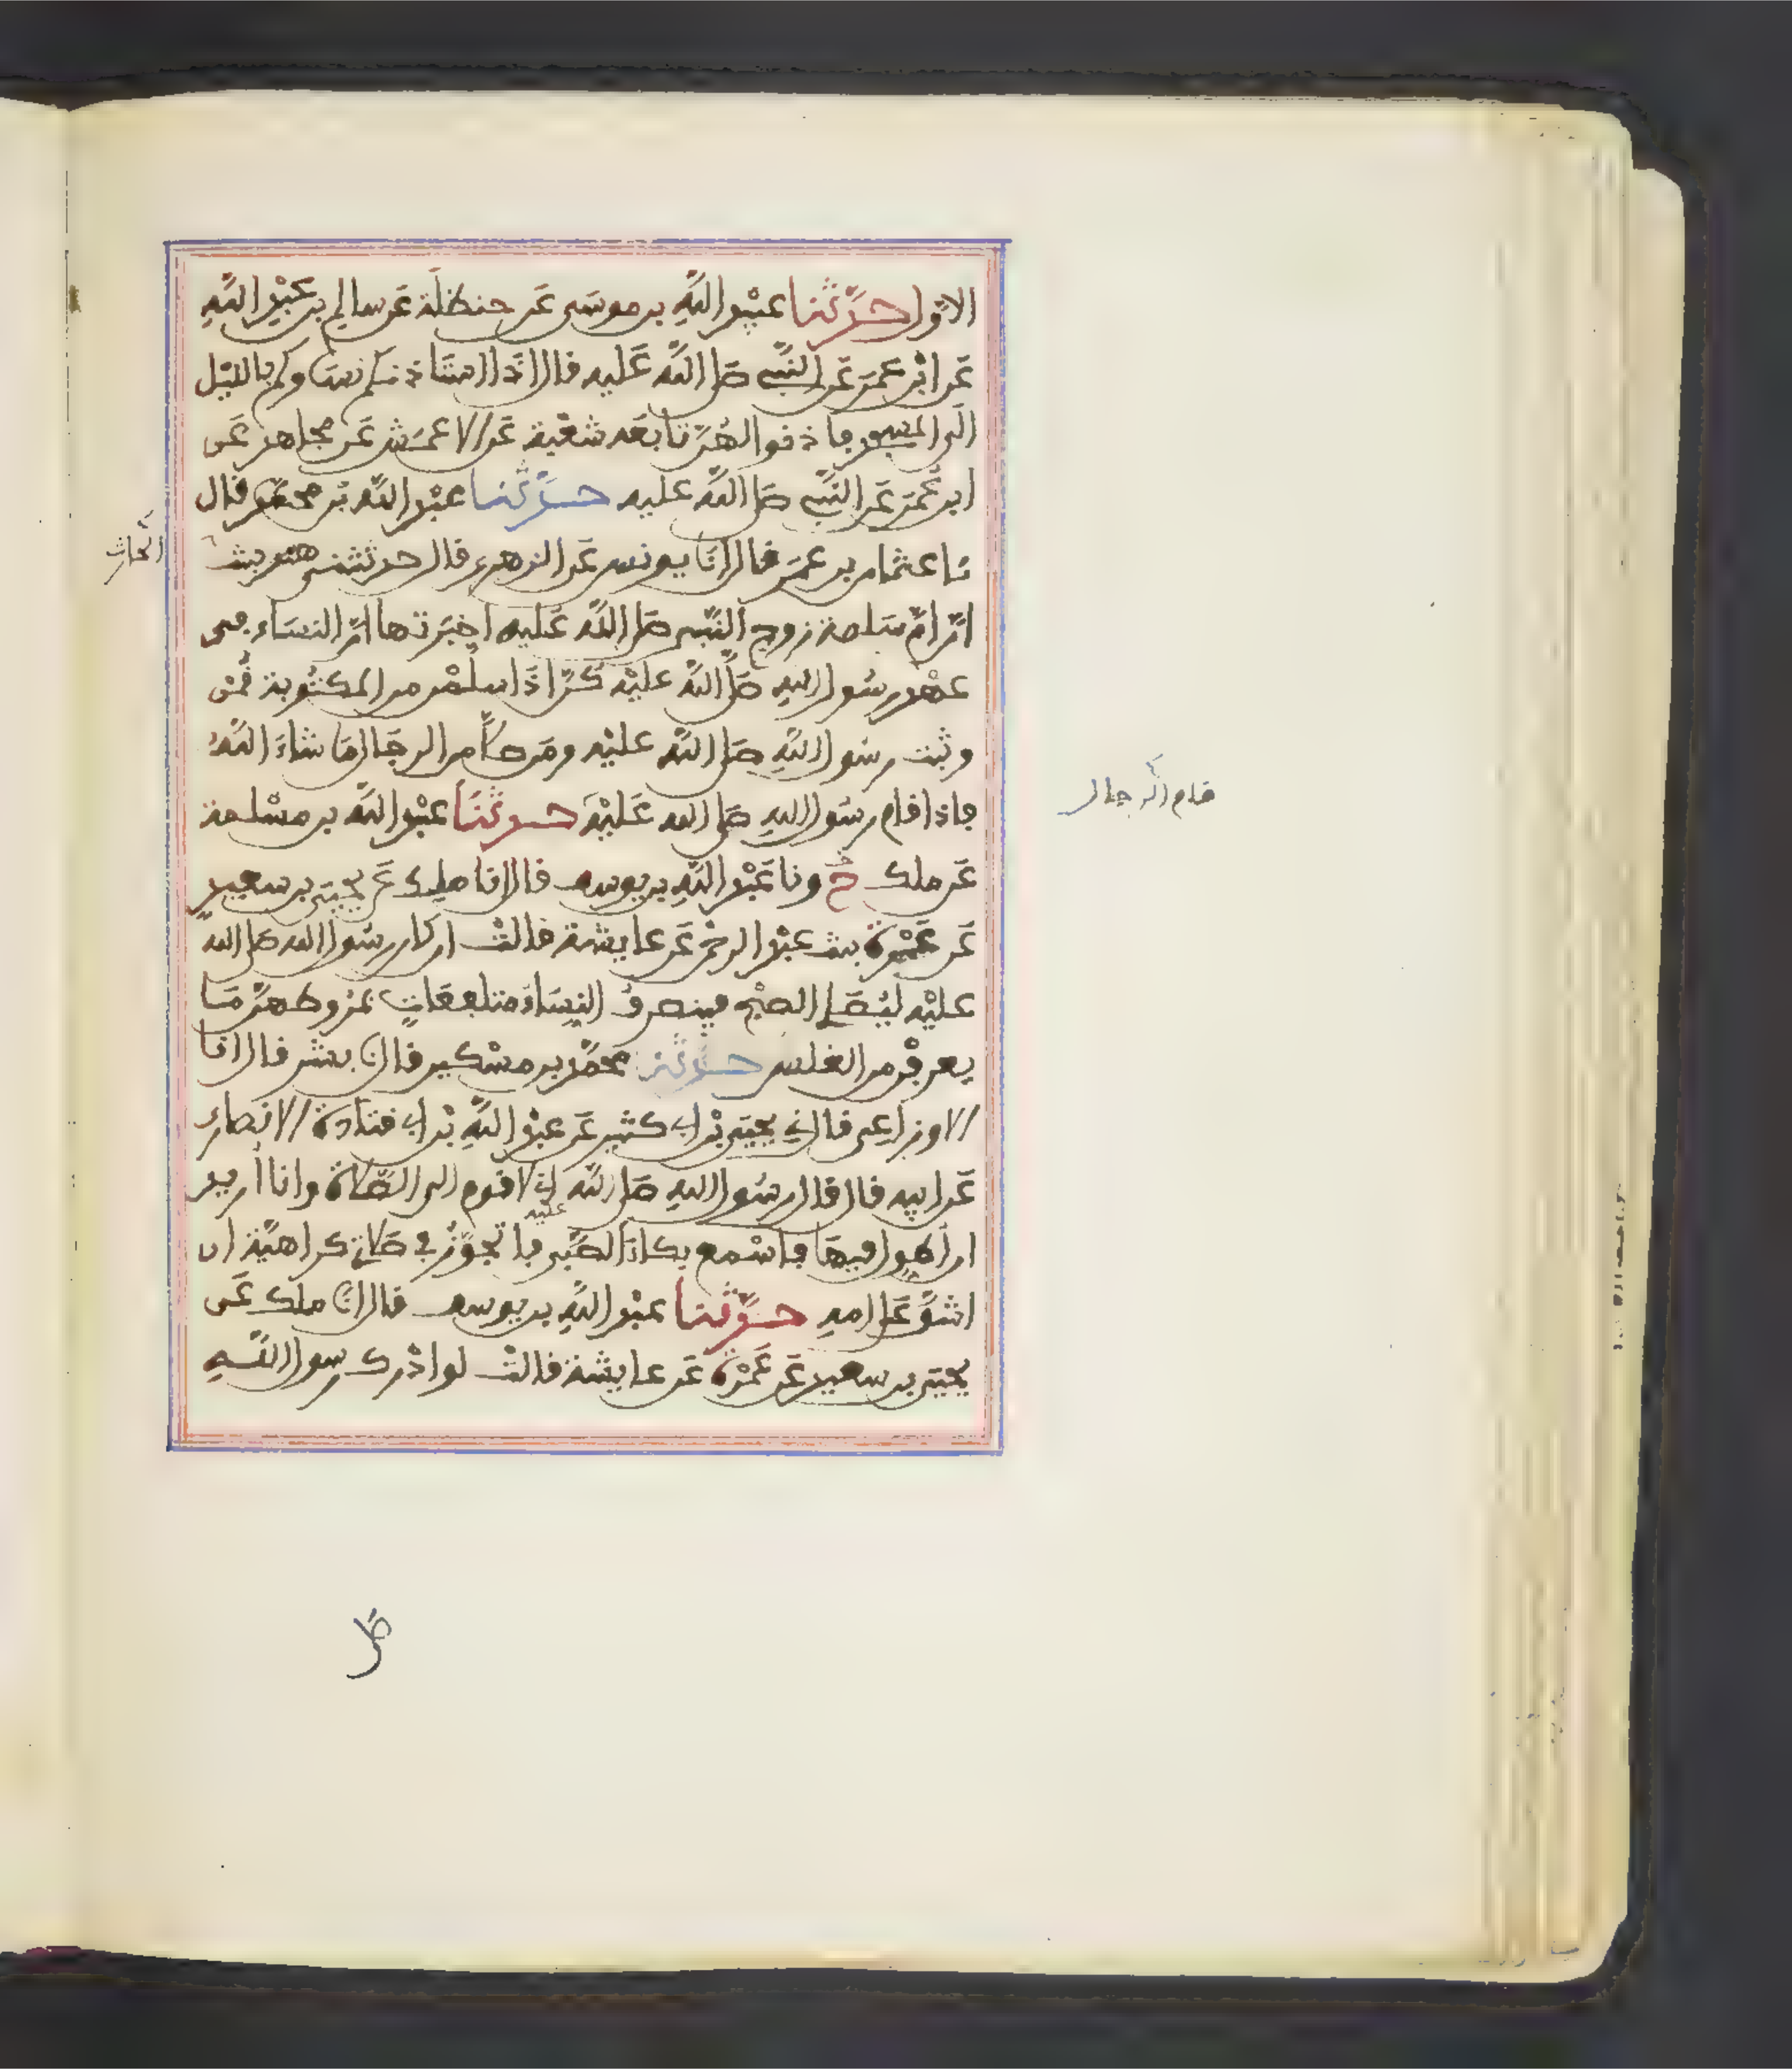 الاول حدثنا عبيد الله بن موسى عن حنظلة عن سالم بن عبد الله
عن ابن عمر عن النبي صلى الله عليه قال اذا استاذنكم نساوكم بالليل
الى المسجد فاذنوا لهن تابعه شعبة عن الاعمش عن مجاهد عن
ابن عمر عن النبي صلى الله عليه حدثنا عبد الله بن محمد قال
نا عثمان بن عمر قال انا يونس عن الزهري قال حدثتني هند بنت
الحارث
ان ام سلمة زوج النبي صلى الله عليه اخبرتها ان النساء في
عهد رسول الله صلى الله عليه كن اذا سلمن من المكتوبة قمن
وثبت رسول الله صلى الله عليه ومن صلى من الرجال ما شاء الله
فاذا قام رسول الله صلى الله عليه حدثنا عبد الله بن مسلمة
قام الرجال
عن ملك ح ونا عبد الله بن يوسف قال انا ملك عن يحيى بن سعيد
عن عمرة بنت عبد الرحمن عن عايشة قالت ان كان رسول الله صلى الله
عليه ليصلي الصبح فينصرف النساء متلفعات بمروطهن ما
يعرفن من الغلس حدثنا محمد بن مسكين قال نا بشر قال انا
الاوزاعي قال ني يحيى بن ابي كثير عن عبد الله بن ابي قتادة الانصاري
عن ابيه قال قال رسول الله صلى الله عليه اني لاقوم الى الصلاة وانا اريد
ان اطول فيها فاسمع بكاء الصبي فاتجوز في صلاتي كراهية ان
اشق على امه حدثنا عبد الله بن يوسف قال انا ملك عن
يحيى بن سعيد عن عمرة عن عايشة قالت لو ادرك رسول الله
صلى